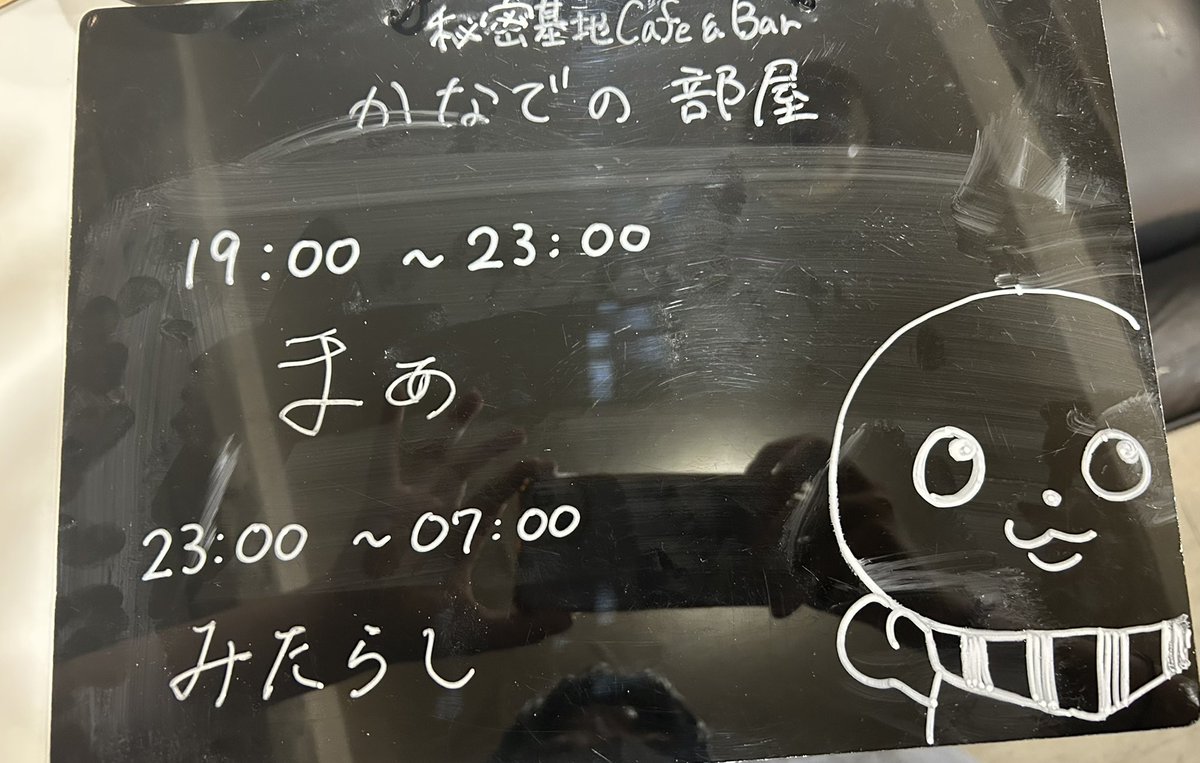 秘密基地Cafe&Bar
かなでの部屋
19:00 ~ 23:00
まぁ
23:00 ~ 07:00
みたらし